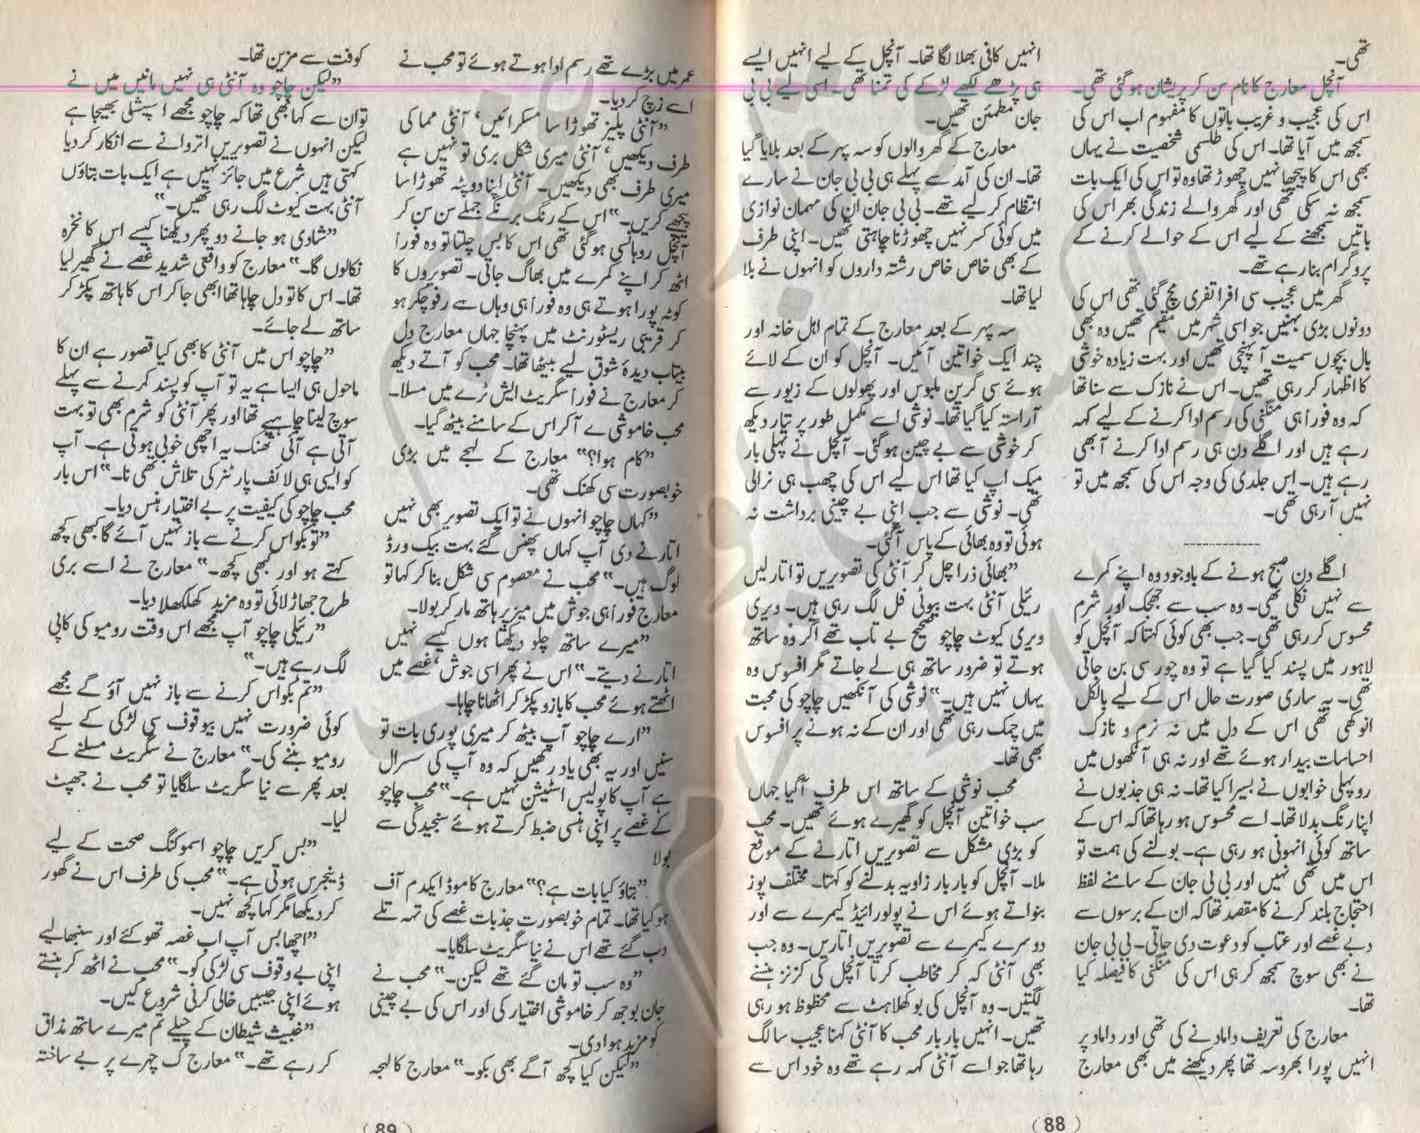 تھی۔
آنچل معارج کا نام سن کر پریشان ہو گئی تھی۔
اس کی عجیب و غریب باتوں کا مفہوم اب اس کی
سمجھ میں آیا تھا۔ اس کی طلسمی شخصیت نے یہاں
بھی اس کا پیچھا نہیں چھوڑا تھا وہ تو اس کی ایک بات
سمجھ نہ سکی تھی اور گھر والے زندگی بھر اس کی
باتیں سمجھنے کے لیے اس کے حوالے کرنے کے
پروگرام بنا رہے تھے۔
گھر میں عجیب سی افراتفری مچ گئی تھی اس کی
دونوں بڑی بہنیں جو اسی شہر میں مقیم تھیں وہ بھی
بال بچوں سمیت آ پہنچی تھیں اور بہت زیادہ خوشی
کا اظہار کر رہی تھیں۔ اس نے نازک سے سنا تھا
کہ وہ فوراً ہی منگنی کی رسم ادا کرنے کے لیے کہہ
رہے ہیں اور اگلے دن ہی رسم ادا کرنے آ بھی
رہے ہیں۔ اس جلدی کی وجہ اس کی سمجھ میں تو
نہیں آ رہی تھی۔
---------------
اگلے دن صبح ہونے کے باوجود وہ اپنے کمرے
سے نہیں نکلی تھی۔ وہ سب سے جھجک اور شرم
محسوس کر رہی تھی۔ جب بھی کوئی کہتا کہ آنچل کو
لاہور میں پسند کیا گیا ہے تو وہ چور سی بن جاتی
تھی۔ یہ ساری صورت حال اس کے لیے بالکل
انوکھی تھی اس کے دل میں نہ نرم و نازک
احساسات بیدار ہوئے تھے اور نہ ہی آنکھوں میں
روپہلی خوابوں نے بسیرا کیا تھا۔ نہ ہی جذبوں نے
اپنا رنگ بدلا تھا۔ اسے محسوس ہو رہا تھا کہ اس کے
ساتھ کوئی انہونی ہو رہی ہے۔ بولنے کی ہمت تو
اس میں تھی نہیں اور بی بی جان کے سامنے لفظ
احتجاج بلند کرنے کا مقصد تھا کہ ان کے برسوں سے
دبے غصے اور عتاب کو دعوت دی جاتی۔ بی بی جان
نے بھی سوچ سمجھ کر ہی اس کی منگنی کا فیصلہ کیا
تھا۔
معارج کی تعریف داماد نے کی تھی اور داماد پر
انہیں پورا بھروسہ تھا پھر دیکھنے میں بھی معارج
انہیں کافی بھلا لگا تھا۔ آنچل کے لیے انہیں ایسے
ہی پڑھے لکھے لڑکے کی تمنا تھی۔ اسی لیے بی بی
جان مطمئن تھیں۔
معارج کے گھر والوں کو سہ پہر کے بعد بلایا گیا
تھا۔ ان کی آمد سے پہلے ہی بی بی جان نے سارے
انتظام کر لیے تھے۔ بی بی جان ان کی مہمان نوازی
میں کوئی کسر نہیں چھوڑنا چاہتی تھیں۔ اپنی طرف
کے بھی خاص خاص رشتہ داروں کو انہوں نے بلا
لیا تھا۔
سہ پہر کے بعد معارج کے تمام اہل خانہ اور
چند ایک خواتین آئیں۔ آنچل کو ان کے لائے
ہوئے سی گرین ملبوس اور پھولوں کے زیور سے
آراستہ کیا گیا تھا۔ نوشی اسے مکمل طور پر تیار دیکھ
کر خوشی سے بے چین ہو گئی۔ آنچل نے پہلی بار
میک اپ کیا تھا اس لیے اس کی چھب ہی نرالی
تھی۔ نوشی سے جب اپنی بے چینی برداشت نہ
ہوئی تو وہ بھائی کے پاس آ گئی۔
”بھائی ذرا چل کر آنٹی کی تصویریں تو اتار لیں
رئیلی آنٹی بہت بیوٹی فل لگ رہی ہیں۔ ویری
ویری کیوٹ چاچو صحیح بے تاب تھے اگر وہ ساتھ
ہوتے تو ضرور ساتھ ہی لے جاتے مگر افسوس وہ
یہاں نہیں ہیں۔“ نوشی کی آنکھیں چاچو کی محبت
میں چمک رہی تھی اور ان کے نہ ہونے پر افسوس
بھی تھا۔
محب نوشی کے ساتھ اس طرف آ گیا جہاں
سب خواتین آنچل کو گھیرے ہوئے تھیں۔ محب
کو بڑی مشکل سے تصویریں اتارنے کے موقع
ملا۔ آنچل کو بار بار زاویہ بدلنے کو کہتا۔ مختلف پوز
بنواتے ہوئے اس نے پولورائیڈ کیمرے سے اور
دوسرے کیمرے سے تصویریں اتاریں۔ وہ جب
بھی آنٹی کہہ کر مخاطب کرتا آنچل کی کزنز ہنسنے
لگتیں۔ وہ آنچل کی بوکھلاہٹ سے محظوظ ہو رہی
تھیں۔ انہیں بار بار محب کا آنٹی کہنا عجیب سا لگ
رہا تھا جو اسے آنٹی کہہ رہے تھے وہ خود اس سے
(88)
عمر میں بڑے تھے رسم ادا ہوتے ہوئے تو محب نے
اسے زچ کر دیا۔
”آنٹی پلیز تھوڑا سا مسکرائیں‘ آنٹی مما کی
طرف دیکھیں‘ آنٹی میری شکل بری تو نہیں ہے
میری طرف بھی دیکھیں۔ آنٹی اپنا دوپٹہ تھوڑا سا
پیچھے کریں۔“ اس کے رنگ برنگے جملے سن سن کر
آنچل روہانسی ہو گئی تھی اس کا بس چلتا تو وہ فوراً
اٹھ کر اپنے کمرے میں بھاگ جاتی۔ تصویروں کا
کوٹہ پورا ہوتے ہی وہ فوراً ہی وہاں سے رفو چکر ہو
کر قریبی ریسٹورنٹ میں پہنچا جہاں معارج دل
بیتاب دیدۂ شوق لیے بیٹھا تھا۔ محب کو آتے دیکھ
کر معارج نے فوراً سگریٹ ایش ٹرے میں مسلا۔
محب خاموشی سے آ کر اس کے سامنے بیٹھ گیا۔
”کام ہوا؟“ معارج کے لہجے میں بڑی
خوبصورت سی کھنک تھی۔
”کہاں چاچو انہوں نے تو ایک تصویر بھی نہیں
اتارنے دی آپ کہاں پھنس گئے بہت بیک ورڈ
لوگ ہیں۔“ محب نے معصوم سی شکل بنا کر کہا تو
معارج فوراً ہی جوش میں میز پر ہاتھ مار کر بولا۔
”میرے ساتھ چلو دیکھتا ہوں کیسے نہیں
اتارنے دیتے۔“ اس نے پھر اسی جوش‘ غصے میں
اٹھتے ہوئے محب کا بازو پکڑ کر اٹھانا چاہا۔
”ارے چاچو آپ بیٹھ کر میری پوری بات تو
سنیں اور یہ بھی یاد رکھیں کہ وہ آپ کی سسرال
ہے آپ کا پولیس اسٹیشن نہیں ہے۔“ محب چاچو
کے غصے پر اپنی ہنسی ضبط کرتے ہوئے سنجیدگی سے
بولا
”بتاؤ کیا بات ہے؟“ معارج کا موڈ ایکدم آف
ہو گیا تھا۔ تمام خوبصورت جذبات غصے کی تہہ تلے
دب گئے تھے اس نے نیا سگریٹ سلگایا۔
”وہ سب تو مان گئے تھے لیکن۔“ محب نے
جان بوجھ کر خاموشی اختیار کی اور اس کی بے چینی
کو مزید ہوا دی۔
”لیکن کیا کچھ آگے بھی بکو۔“ معارج کا لہجہ
کوفت سے مزین تھا۔
”لیکن چاچو وہ آنٹی ہی نہیں مانیں میں نے
تو ان سے کہا بھی تھا کہ چاچو مجھے اسپیشلی بھیجا ہے
لیکن انہوں نے تصویریں اتروانے سے انکار کر دیا
کہتی ہیں شرع میں جائز نہیں ہے ایک بات بتاؤں
آنٹی بہت کیوٹ لگ رہی تھیں۔“
”شادی ہو جانے دو پھر دیکھنا کیسے اس کا نخرہ
نکالوں گا۔“ معارج کو واقعی شدید غصے نے گھیر لیا
تھا۔ اس کا تو دل چاہا تھا ابھی جا کر اس کا ہاتھ پکڑ کر
ساتھ لے جائے۔
”چاچو اس میں آنٹی کا بھی کیا قصور ہے ان کا
ماحول ہی ایسا ہے یہ تو آپ کو پسند کرنے سے پہلے
سوچ لینا چاہیے تھا اور پھر آنٹی کو شرم بھی تو بہت
آتی ہے آئی تھنک یہ اچھی خوبی ہوتی ہے۔ آپ
کو ایسی ہی لائف پارٹنر کی تلاش تھی نا۔“ اس بار
محب چاچو کی کیفیت پر بے اختیار ہنس دیا۔
”تو بکواس کرنے سے باز نہیں آئے گا بھی کچھ
کہتے ہو اور کبھی کچھ۔“ معارج نے اسے بری
طرح جھاڑ لائی تو وہ مزید کھلکھلا دیا۔
”رئیلی چاچو آپ مجھے اس وقت رومیو کی کاپی
لگ رہے ہیں۔“
”تم بکواس کرنے سے باز نہیں آؤ گے مجھے
کوئی ضرورت نہیں بیوقوف سی لڑکی کے لیے
رومیو بننے کی۔“ معارج نے سگریٹ مسلنے کے
بعد پھر سے نیا سگریٹ سلگایا تو محب نے جھپٹ
لیا۔
”بس کریں چاچو اسموکنگ صحت کے لیے
ڈینجرس ہوتی ہے۔“ محب کی طرف اس نے گھور
کر دیکھا مگر کہا کچھ نہیں۔
”اچھا بس آپ اب غصہ تھوکئے اور سنبھالیے
اپنی بے وقوف سی لڑکی کو۔“ محب نے اٹھ کر ہنستے
ہوئے اپنی جیبیں خالی کرنی شروع کیں۔
”خبیث شیطان کے چیلے تم میرے ساتھ مذاق
کر رہے تھے۔“ معارج ک چہرے پر بے ساختہ
(89)